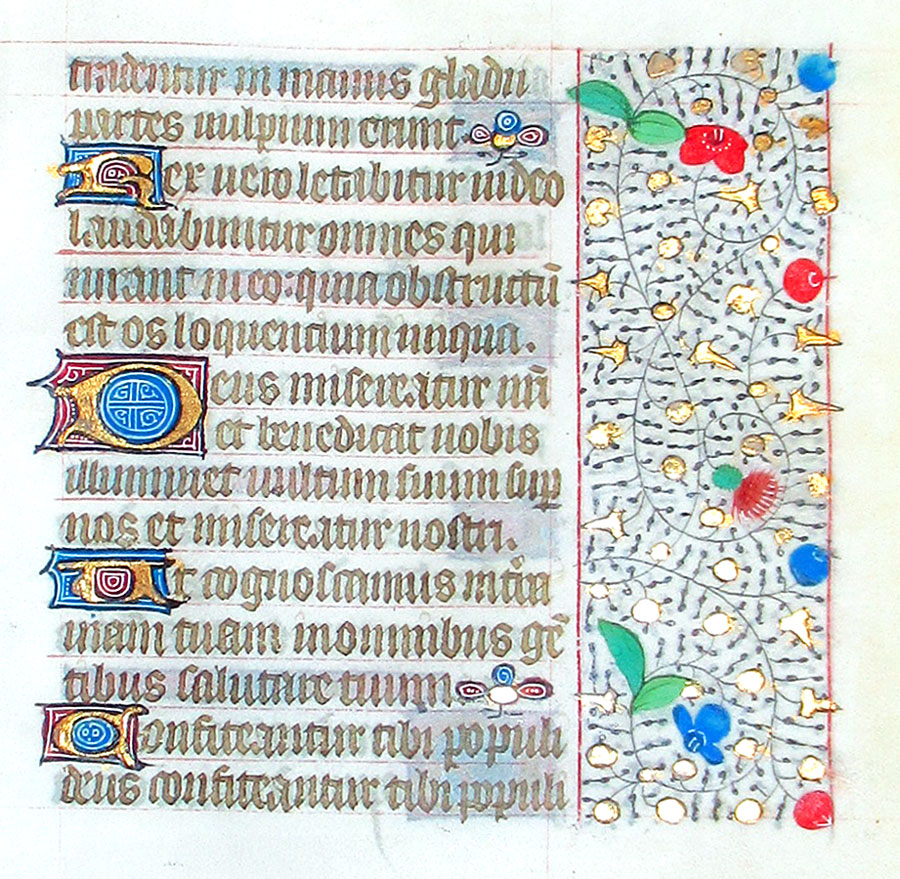 tradentur in manus gladii
partes uulpium erunt
Rex uero letabitur in deo
laudabuntur omnes qui
iurant in eo: quia obstructū
est os loquentium iniqua.
Deus misereatur nr̄i
et benedicat nobis
illuminet uultum suum sup̄
nos et misereatur nostri.
Ut cognoscamus in tr̄a
uiam tuam in omnibus gē
tibus salutare tuum
Confiteantur tibi populi
deus confiteantur tibi populi